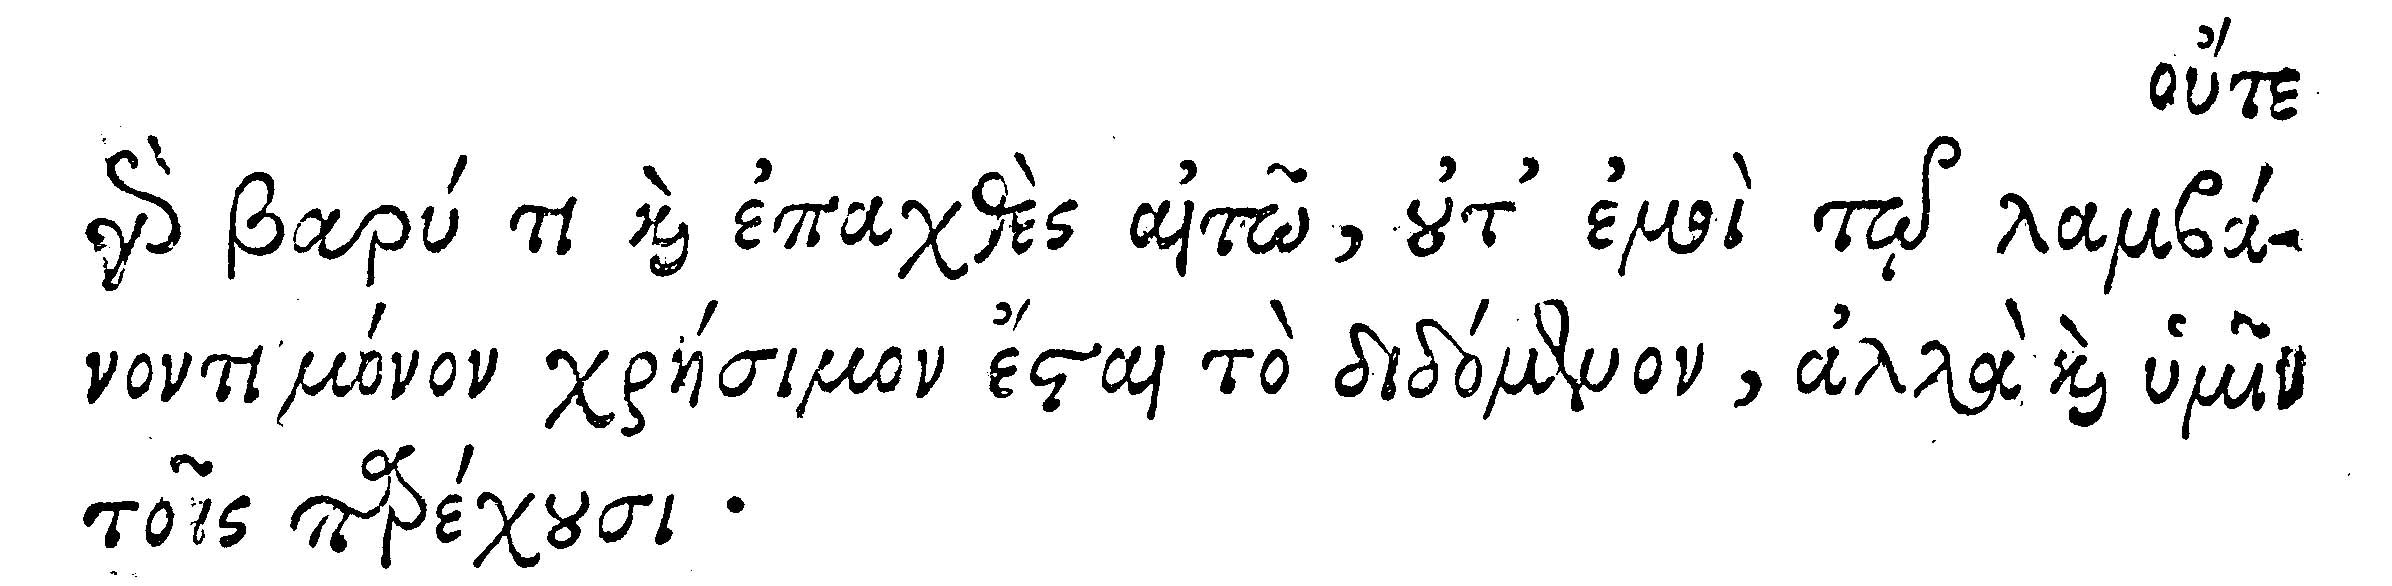 οὔτε
γὰρ βαρύ τι καὶ ἐπαχθὲς αἰτῶ, οὔτ᾽ ἐμοὶ τῷ λαμβά-
νοντι μόνον χρήσιμον ἔσται τὸ διδόμενον, ἀλλὰ καὶ ὑμῖν
τοῖς παρέχουσι.